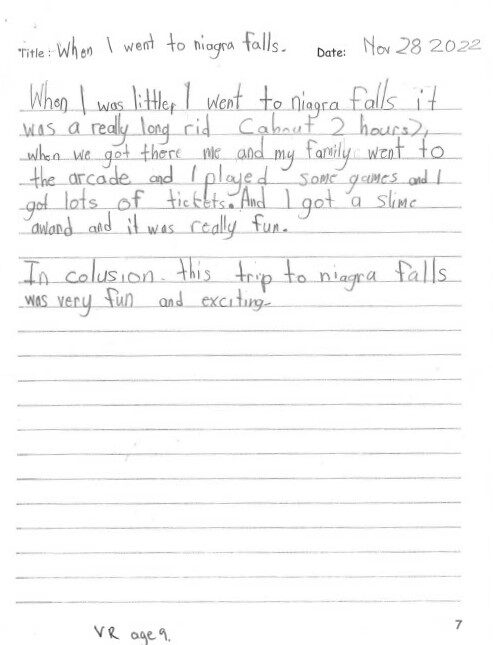 Title: When I went to niagra falls. Date: Nov 28 2022
When I was little, I went to niagra falls it
was a really long rid (about 2 hours),
when we got there me and my family went to
the arcade and I played some games and I
got lots of tickets. And I got a slime
award and it was really fun.
In colusion. this trip to niagra falls
was very fun and exciting.
7
VR age 9.